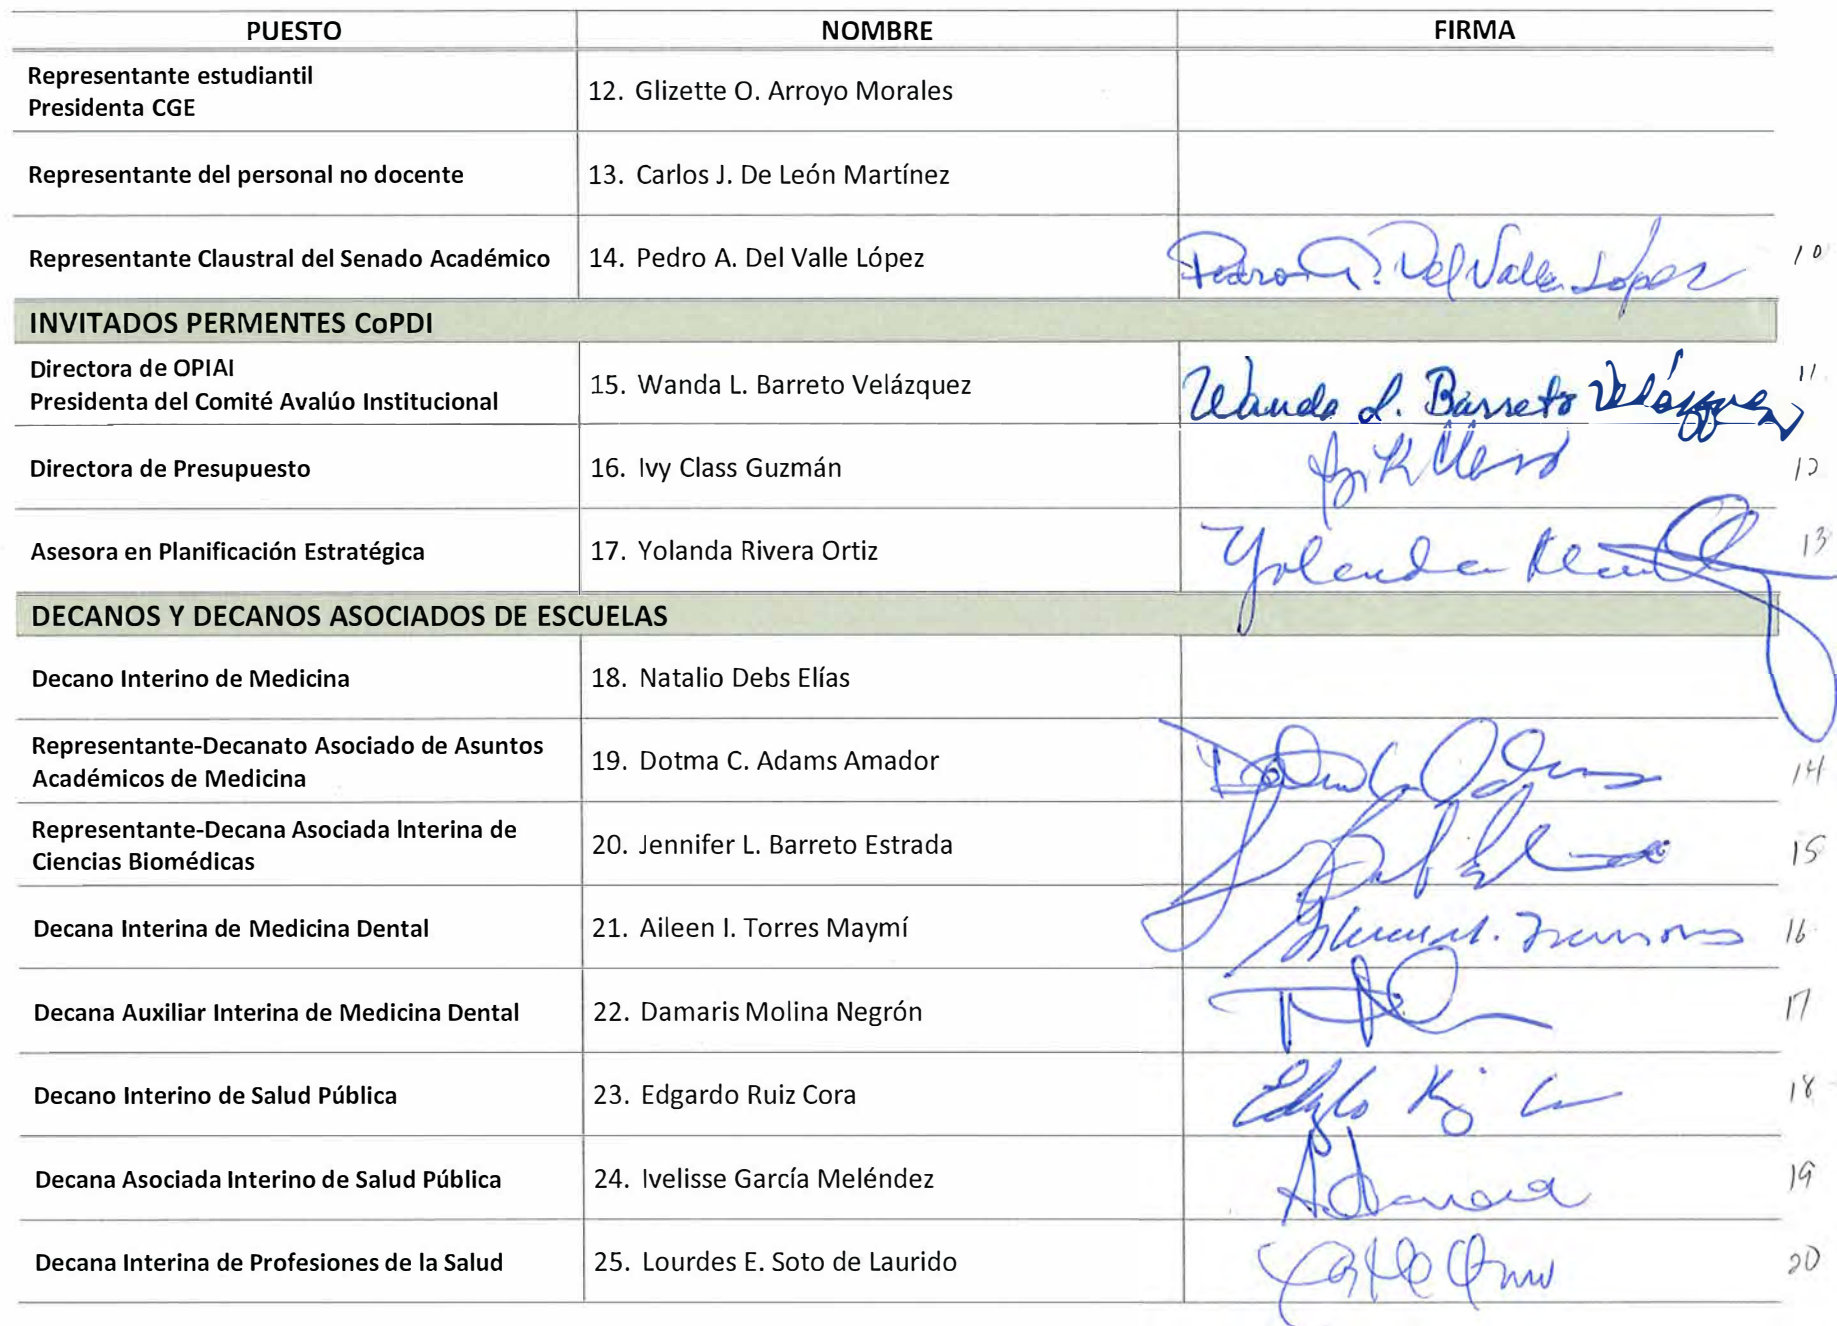 PUESTO NOMBRE FIRMA
Representante estudiantil
Presidenta CGE
12. Glizette O. Arroyo Morales
Representante del personal no docente 13. Carlos J. De León Martínez
Representante Claustral del Senado Académico 14. Pedro A. Del Valle López Pedro A. Del Valle López 10
INVITADOS PERMENTES CoPDI
Directora de OPIAI
Presidenta del Comité Avalúo Institucional
15. Wanda L. Barreto Velázquez Wanda L. Barreto Velázquez 11
Directora de Presupuesto 16. Ivy Class Guzmán 12
Asesora en Planificación Estratégica 17. Yolanda Rivera Ortiz Yolanda 13
DECANOS Y DECANOS ASOCIADOS DE ESCUELAS
Decano Interino de Medicina 18. Natalio Debs Elías
Representante-Decanato Asociado de Asuntos
Académicos de Medicina
19. Dotma C. Adams Amador 14
Representante-Decana Asociada Interina de
Ciencias Biomédicas
20. Jennifer L. Barreto Estrada 15
Decana Interina de Medicina Dental 21. Aileen I. Torres Maymí 16
Decana Auxiliar Interina de Medicina Dental 22. Damaris Molina Negrón 17
Decano Interino de Salud Pública 23. Edgardo Ruiz Cora 18
Decana Asociada Interino de Salud Pública 24. Ivelisse García Meléndez 19
Decana Interina de Profesiones de la Salud 25. Lourdes E. Soto de Laurido 20